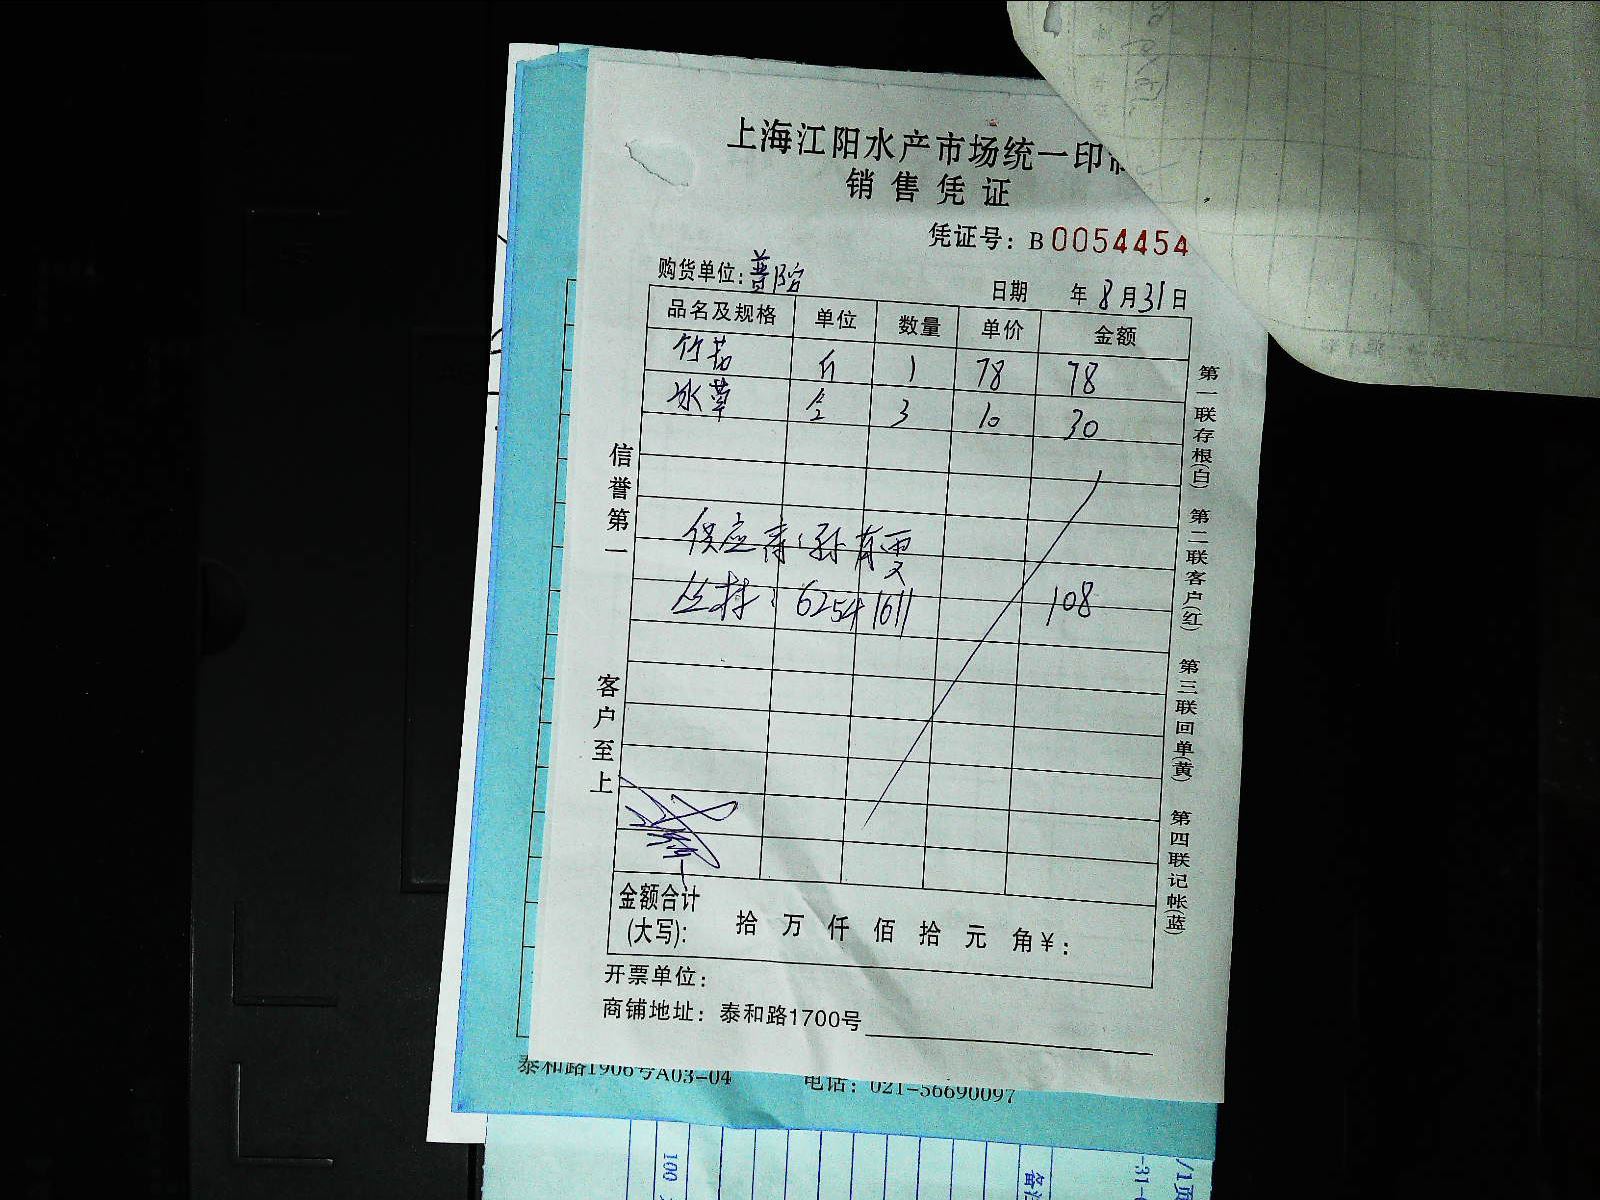 上海江阳水产市场统一印
销售凭证
凭证号：B0054454
购货单位：普陀
日期 年8月31日
品名及规格 单位 数量 单价 金额
竹荪 斤 1 78 78
冰草 盒 3 10 30
供应商：孙有雯
丛林：62541611 108
信誉第一
客户至上
第一联存根(白) 第二联客户(红) 第三联回单(黄) 第四联记帐(蓝)
金额合计
(大写)： 拾 万 仟 佰 拾 元 角¥：
开票单位：
商铺地址：泰和路1700号
泰和路1906号A03-04 电话：021-56690097
100
备注
-31-
/1页